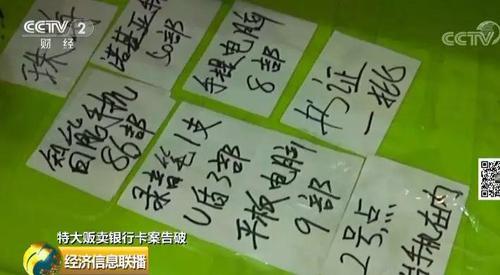 CCTV 2
财经
CCTV
诺基亚手机
手提电脑
8部
书证
一批
智能手机
86部
录音笔1支
U盾3部
平板电脑
9部
2号点
特大贩卖银行卡案告破
经济信息联播